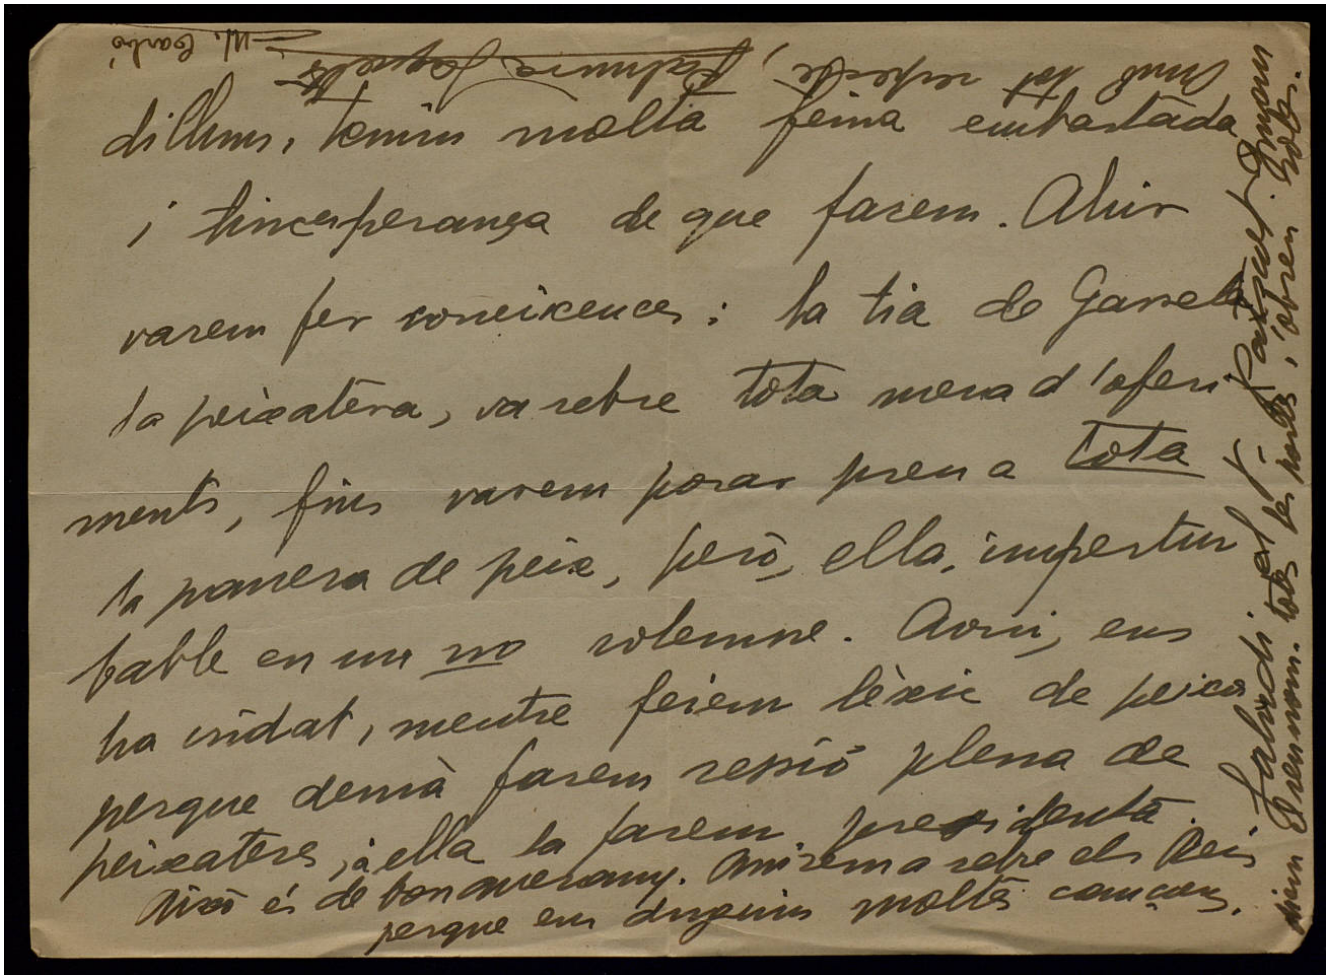 dilluns, tenim molta feina embastada
i tinc esperança de que farem. Ahir
varem fer coneixences: la tia de
la peixatera, va rebre tota mena d'oferi
ments, fins varem posar preu a tota
la panera de peix, però, ella, impertur
bable en un no solemne. Avui, ens
ha cridat, mentre feiem lèxic de peixos
perque demà farem sessió plena de
peixateres, i a ella la farem presidenta.
Això és de bon averany. Anirem a rebre els Reis
perque ens duguin moltes cançons.
Saludi al Sr. Patxot. Diguem
Premiem totes les portes i s'obren soles.
Amb tot respecte,
Palmira Jaquetti
M. Carbó